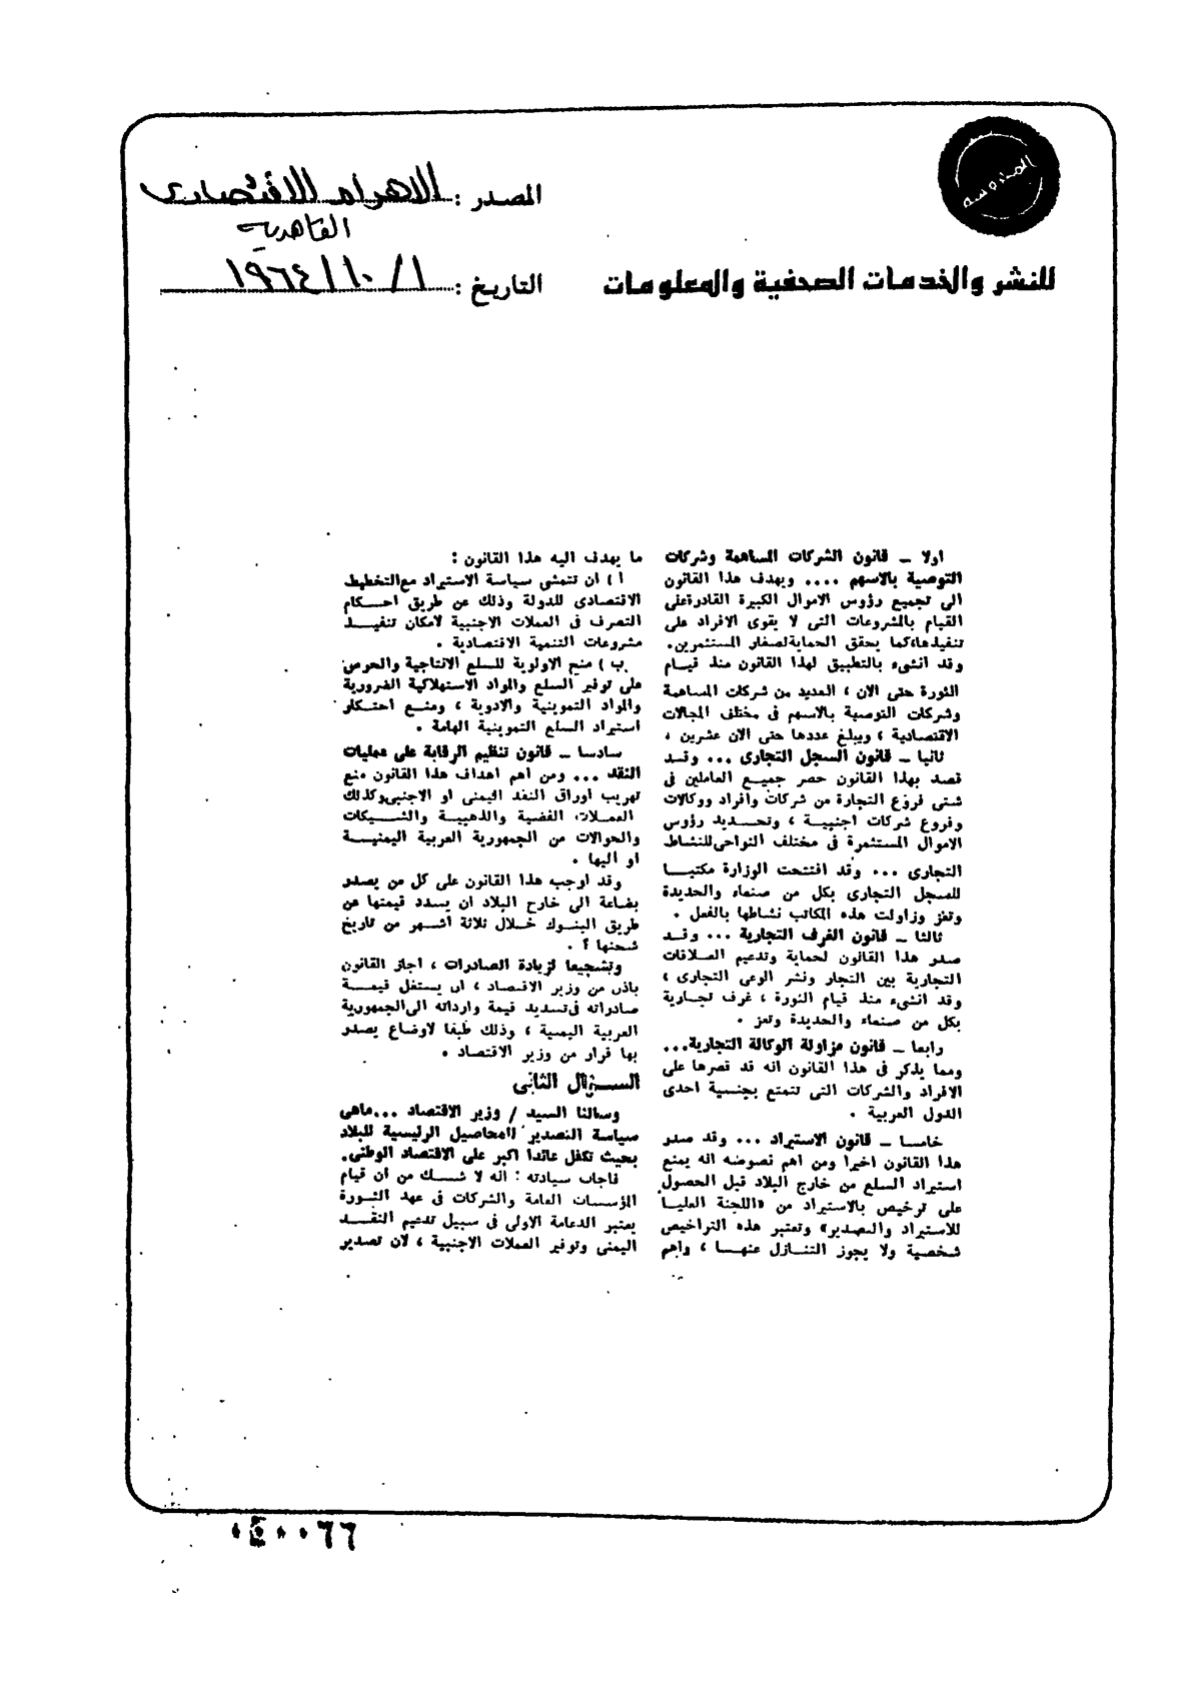 المحروسة
للنشر والخدمات الصحفية والمعلومات
المصدر : الاهرام الاقتصادى
القاهرية
التاريخ : ١٩٦٤/١٠/١
اولا – قانون الشركات المساهمة وشركات
التوصية بالاسهم .... ويهدف هذا القانون
الى تجميع رؤوس الاموال الكبيرة القادرةعلى
القيام بالمشروعات التى لا يقوى الافراد على
تنفيذها،كما يحقق الحمايةلصغار المستثمرين.
وقد انشىء بالتطبيق لهذا القانون منذ قيام
الثورة حتى الان ، العديد من شركات المساهمة
وشركات التوصية بالاسهم فى مختلف المجالات
الاقتصادية ، ويبلغ عددها حتى الان عشرين ،
ثانيا – قانون السجل التجارى ... وقد
قصد بهذا القانون حصر جميع العاملين فى
شتى فروع التجارة من شركات وافراد ووكالات
وفروع شركات اجنبية ، وتحديد رؤوس
الاموال المستثمرة فى مختلف النواحى للنشاط
التجارى ... وقد افتتحت الوزارة مكتبا
للسجل التجارى بكل من صنعاء والحديدة
وتعز وزاولت هذه المكاتب نشاطها بالفعل .
ثالثا – قانون الغرف التجارية ... وقد
صدر هذا القانون لحماية وتدعيم العلاقات
التجارية بين التجار ونشر الوعى التجارى ،
وقد انشىء منذ قيام الثورة ، غرف تجارية
بكل من صنعاء والحديدة وتعز .
رابعا – قانون مزاولة الوكالة التجارية...
ومما يذكر فى هذا القانون انه قد قصرها على
الافراد والشركات التى تتمتع بجنسية احدى
الدول العربية .
خامسا – قانون الاستيراد ... وقد صدر
هذا القانون اخيرا ومن اهم نصوصه انه يمنع
استيراد السلع من خارج البلاد قبل الحصول
على ترخيص بالاستيراد من «اللجنة العليا
للاستيراد والتصدير» وتعتبر هذه التراخيص
شخصية ولا يجوز التنازل عنها ، واهم
ما يهدف اليه هذا القانون :
ا ) ان تتمشى سياسة الاستيراد مع التخطيط
الاقتصادى للدولة وذلك عن طريق احكام
التصرف فى العملات الاجنبية لامكان تنفيذ
مشروعات التنمية الاقتصادية .
ب ) منح الاولوية للسلع الانتاجية والحرص
على توفير السلع والمواد الاستهلاكية الضرورية
والمواد التموينية والادوية ، ومنع احتكار
استيراد السلع التموينية الهامة .
سادسا – قانون تنظيم الرقابة على عمليات
النقد ... ومن اهم اهداف هذا القانون منع
تهريب اوراق النقد اليمنى او الاجنبى وكذلك
العملات الفضية والذهبية والشيكات
والحوالات من الجمهورية العربية اليمنية
او اليها .
وقد اوجب هذا القانون على كل من يصدر
بضاعة الى خارج البلاد ان يسدد قيمتها عن
طريق البنوك خلال ثلاثة اشهر من تاريخ
شحنها ؟ .
وتشجيعا لزيادة الصادرات ، اجاز القانون
باذن من وزير الاقتصاد ، ان يستغل قيمة
صادراته فى تسديد قيمة وارداته الى الجمهورية
العربية اليمنية ، وذلك طبقا لاوضاع يصدر
بها قرار من وزير الاقتصاد .
السؤال الثانى
وسالنا السيد / وزير الاقتصاد ...ماهى
سياسة التصدير للمحاصيل الرئيسية للبلاد
بحيث تكفل عائدا اكبر على الاقتصاد الوطنى.
فاجاب سيادته : انه لا شك من ان قيام
المؤسسات العامة والشركات فى عهد الثورة
يعتبر الدعامة الاولى فى سبيل تدعيم النقد
اليمنى وتوفير العملات الاجنبية ، لان تصدير